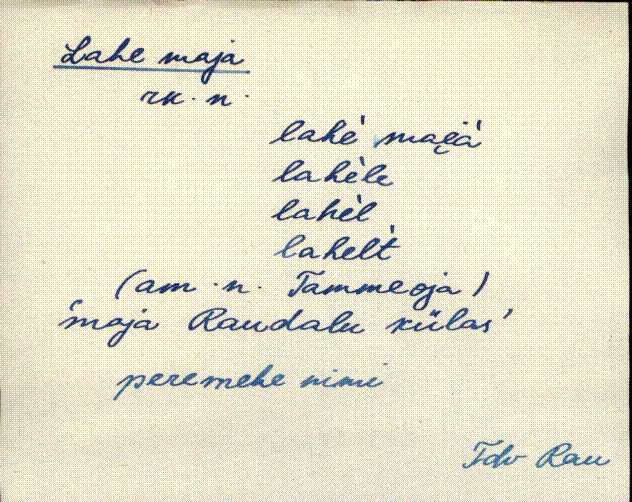 Lahe maja
rk. n.
lahè mai̯à
lahèle
lahèl
lahelt̀
(am. n. Tammeoja)
'maja Raudalu külas'
peremehe nimi
Tdv Rau